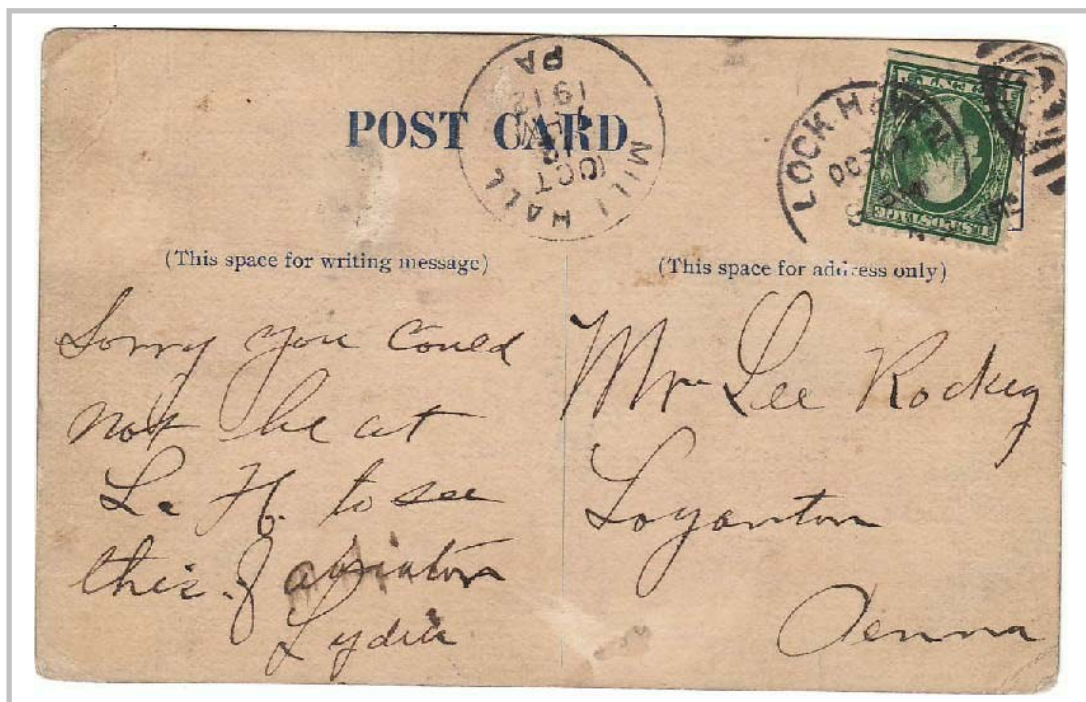 POST CARD
MILL HALL
OCT
1912
PA
LOCK HAVEN
OCT
U.S. POSTAGE
(This space for writing message)
(This space for address only)
Sorry you could
not be at
L. H. to see
this. aviator
Lydia
Mr Lee Rockey
Loganton
Penna